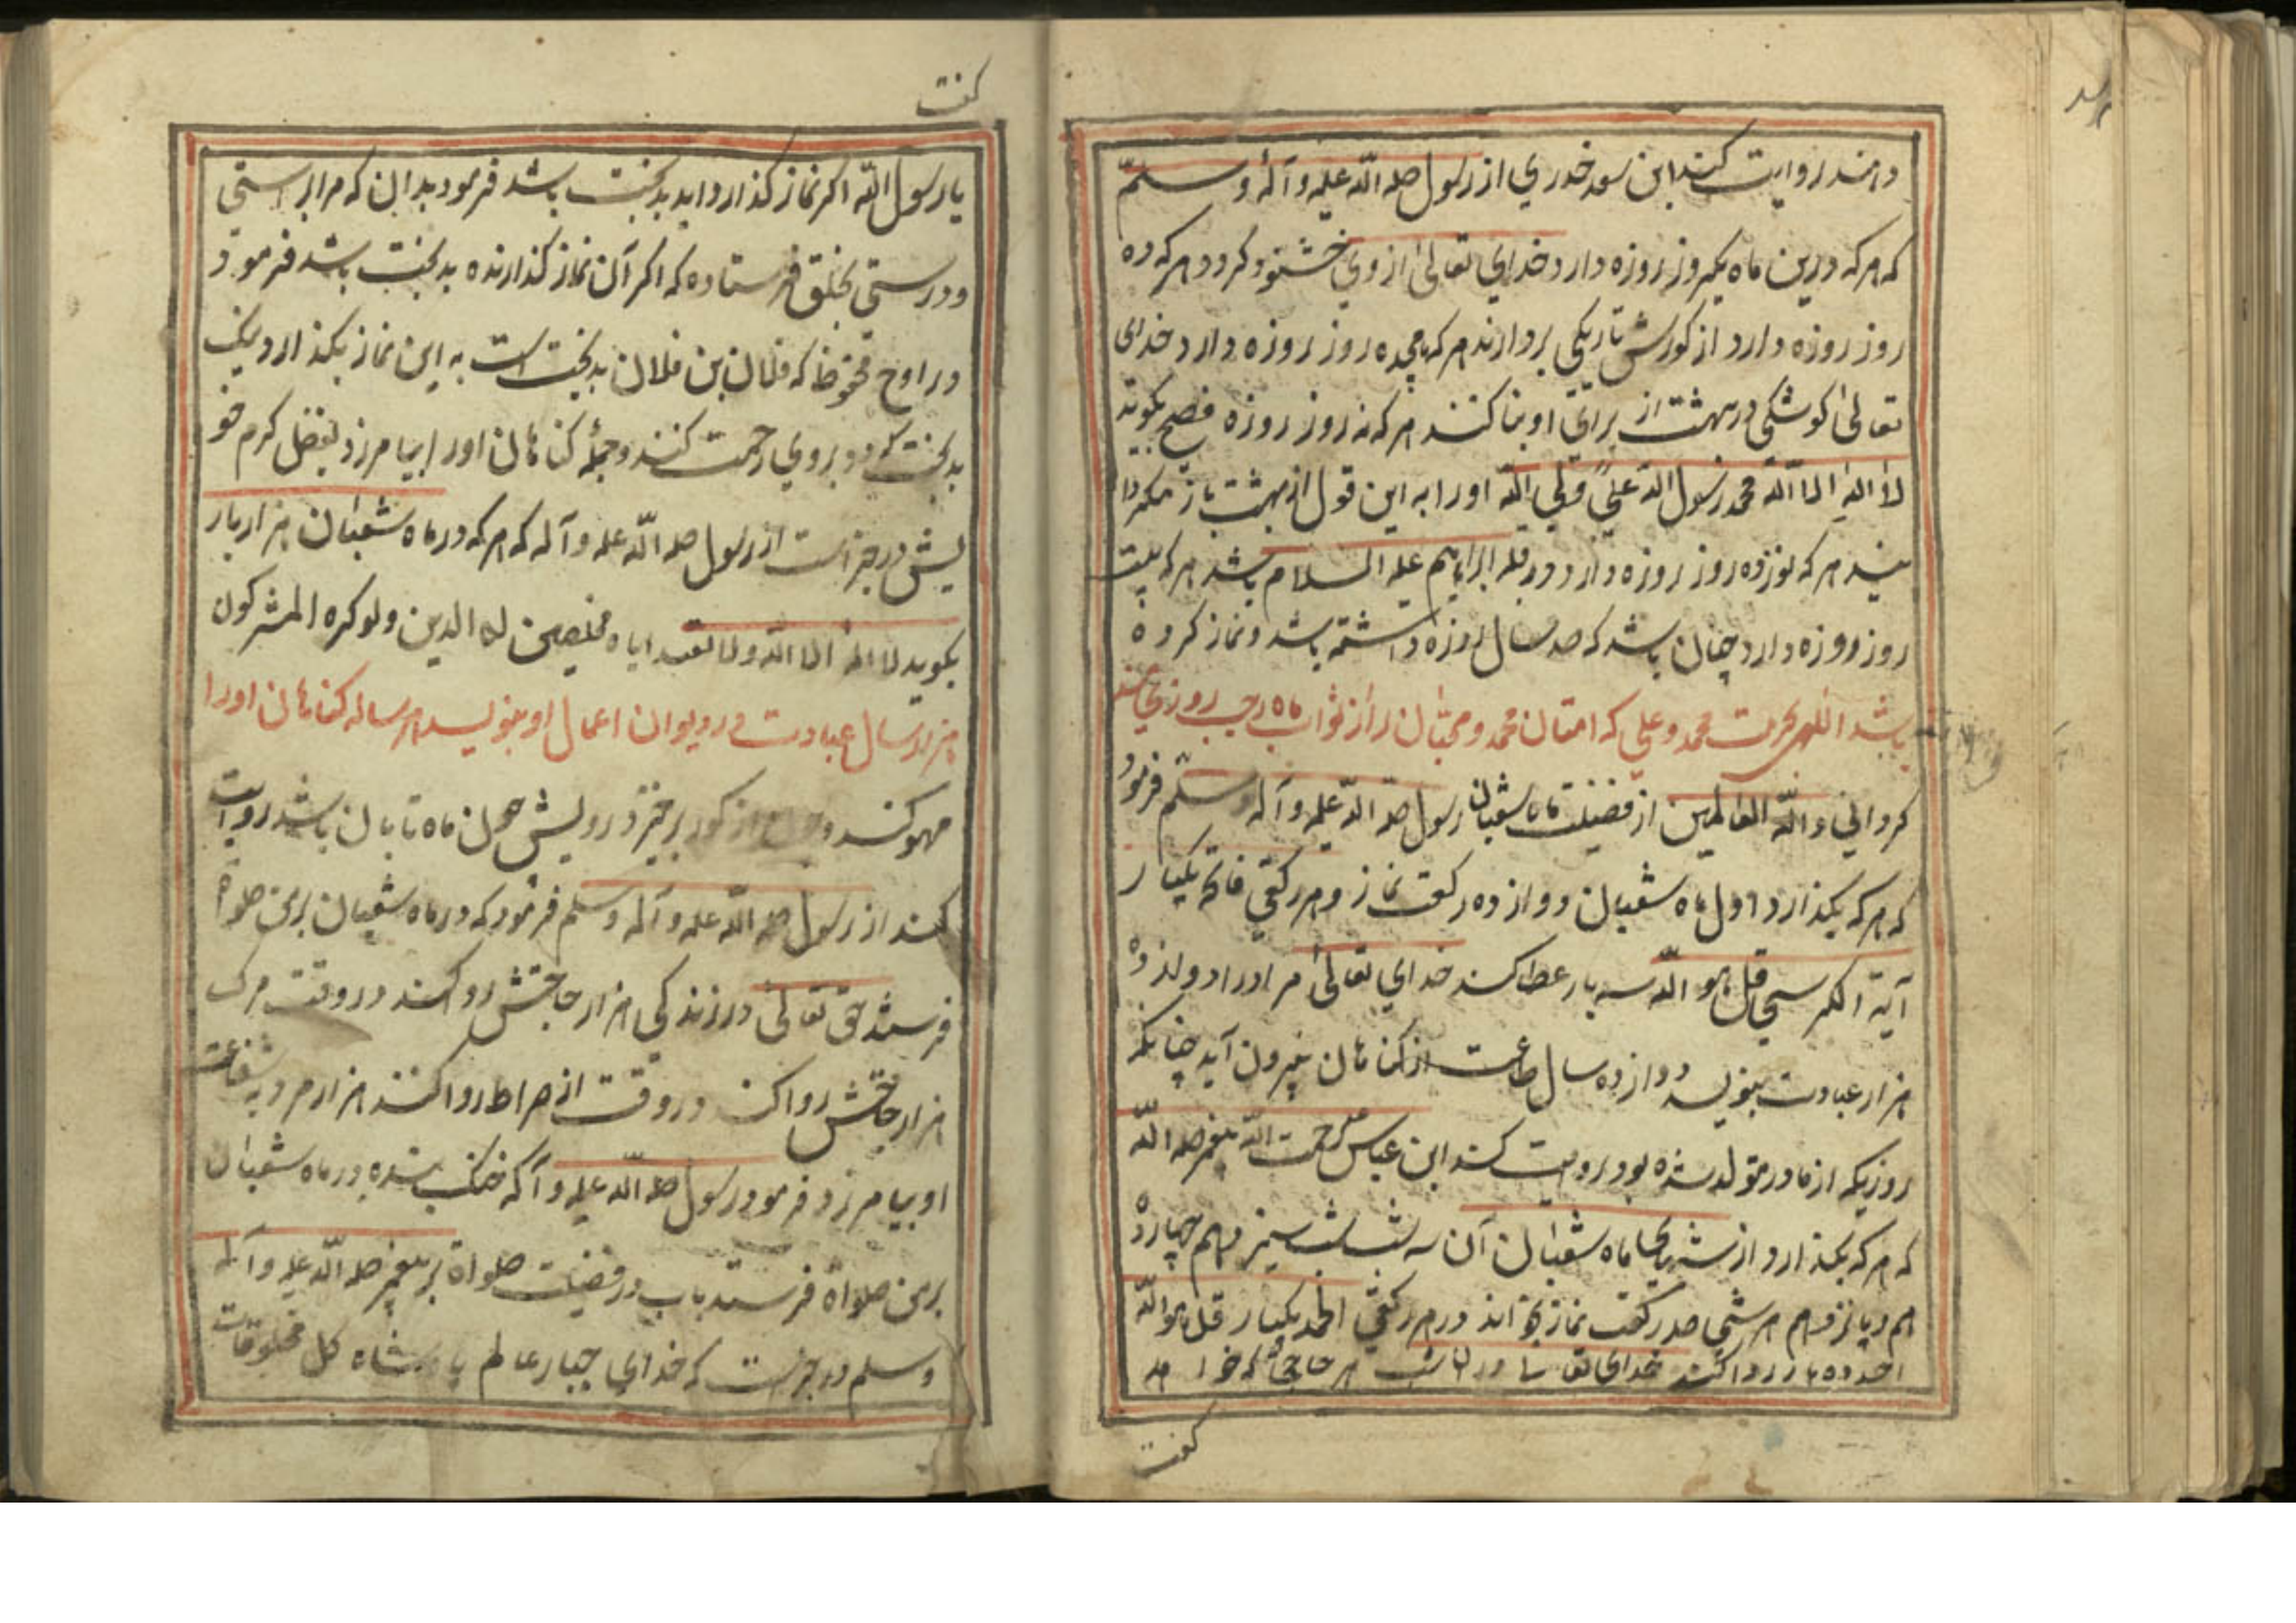 دامند روایت کند ابن سعد خدری از رسول صلی الله علیه و آله و سلم
که هر که درین ماه یکروز روزه دارد خدای تعالی از وی خشنود کردد هر که ده
روز روزه دارد از کورش تاریکی بردارند هر که هجده روز روزه دارد خدای
تعالی کوشکی در بهشت از برای او بنا کنند هر که نه روز روزه فصیح بکوید
لا اله الا الله محمد رسول الله علی ولی الله او را به این قول از بهشت باز
هر که نوزده روز روزه دارد در قبله ابراهیم علیه السلام باشد هر که بیست
روز روزه دارد چنان باشد که صد سال روزه داشته باشد و نماز کرده
باشد اللهم بحرمت محمد و علی که امتان محمد و محبان را از ثواب ماه رجب روزی
کردانی و الله العالمین از فضیلت ماه شعبان رسول صلی الله علیه و آله و سلم فرمود
که هر که بکذارد اول ماه شعبان دوازده رکعت نماز و هر رکعتی فاتحه یکبار
آیة الکرسی قل هو الله سه بار عطا کند خدای تعالی مر او را دوازده
هزار عبادت بنویسد دوازده سال طاعت از کناهان بیرون آید چنانکه
روزیکه از مادر متولد شده بود روایت کند ابن عباس رحمت الله پیغمبر صلی الله
که هر که بکذارد از شبهای ماه شعبان آن سه شب شب سیزدهم چهارده
هم و پانزدهم هر شبی صد رکعت نماز بخواند در هر رکعتی الحمد یکبار قل هو الله
احد ده بار روا کند خدای تعا هر حاجة که خواهد
کفت
کفت
یا رسول الله اکر نماز کذارد اید بدبخت باشد فرمود بدان که مرا براستی
و درستی بخلق فرستاده که اکر آن نماز کذارنده بدبخت باشد فرمود
در لوح محفوظ که فلان بن فلان بدبخت است به این نماز بکذارد نیک
بدبخت کردد و بر وی رحمت کنند و جملهٔ کناهان او را بیامرزد بفضل کرم خو
یش در خبر است از رسول صلی الله علیه و آله که هر که در ماه شعبان هزار بار
بکوید لا اله الا الله ولا نعبد ایاه مخلصین له الدین ولو کره المشرکون
هزار سال عبادت در دیوان اعمال او بنویسد هزار ساله کناهان او را
محو کند و از کور برخیزد رویش چون ماه تابان باشد روایت
کند از رسول صلی الله علیه و آله و سلم فرمود که در ماه شعبان بر من صلواة
فرستد حق تعالی در زندکی هزار حاجتش روا کند در وقت مرک
هزار حاجتش روا کند در وقت از صراط روا کند هزار مرد به شفاعت
او بیامرزد فرمود رسول صلی الله علیه و آله خنک بنده در ماه شعبان
بر من صلواة فرستد باب در فضیلت صلواة بر پیغمبر صلی الله علیه و آله
و سلم در خبر است که خدای جبار عالم پادشاه کل مخلوقات